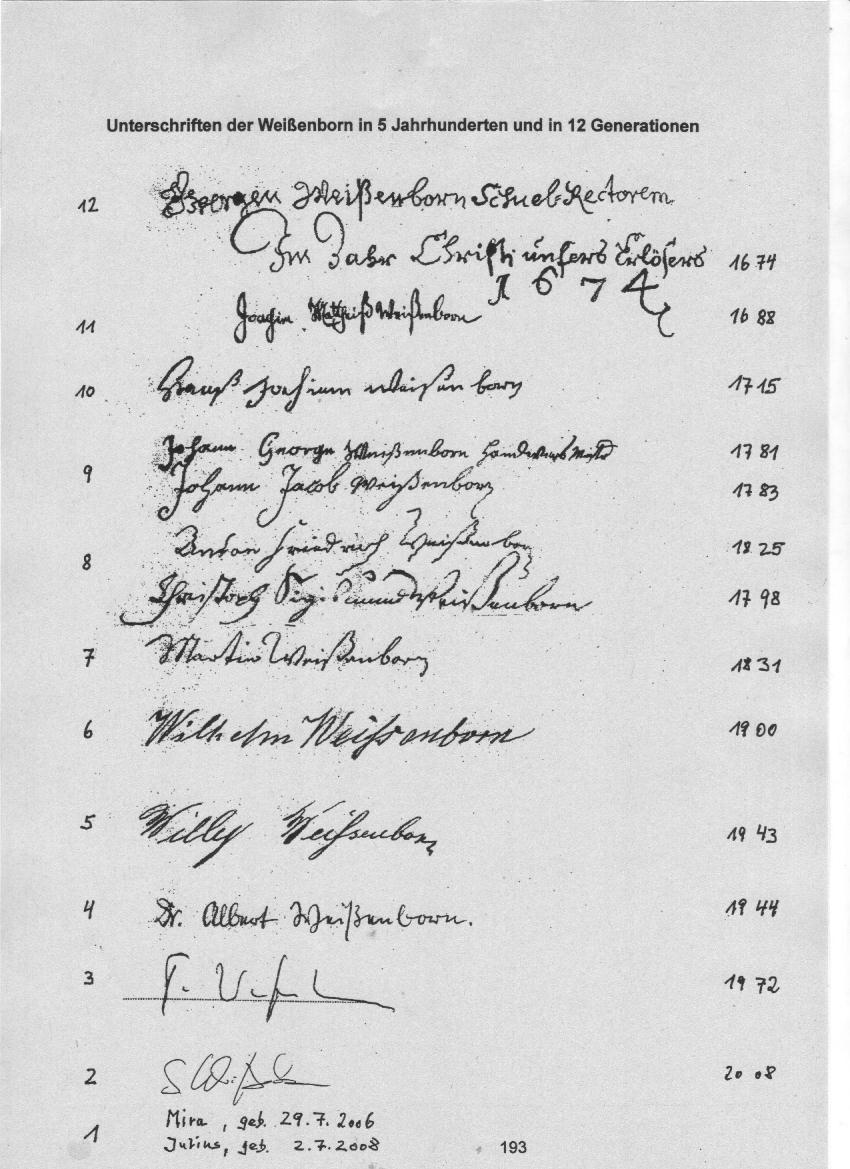 Unterschriften der Weißenborn in 5 Jahrhunderten und in 12 Generationen
12 Weißenborn Schuel-Rectorem
Im Jahr Christi unsers Erlösers 1674
1674
11 Joachim Weißenborn 1688
10 Hanß Jochim Weisenborn 1715
Johann George Weißenborn 1781
9 Johann Jacob Weißenborn 1783
8 Anton Friedrich Weißenborn 1825
Christoph Sigismund Weißenborn 1798
7 Martin Weißenborn 1831
6 Wilhelm Weissenborn 1900
5 Willy Weissenborn 1943
4 Dr. Albert Weißenborn. 1944
3 1972
2 2008
1 Mira, geb. 29.7.2006
Julius, geb. 2.7.2008
193